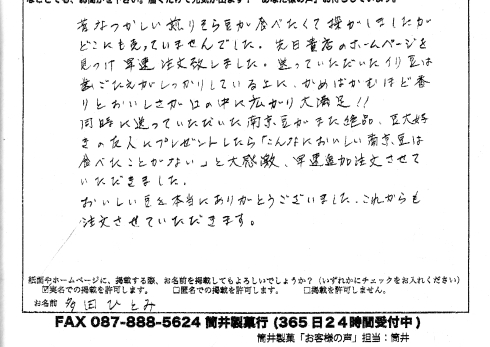 昔なつかしい煎りそら豆が食べたくて探がしましたが
どこにも売っていませんでした。先日貴店のホームページを
見つけ早速注文致しました。送っていただいたイリ豆は
歯ごたえがしっかりしている上に、かめばかむほど香
りとおいしさが口の中に広がり大満足!!
同時に送っていただいた南京豆がまた絶品、豆大好
きの友人にプレゼントしたら「こんなにおいしい南京豆は
食べたことがない」と大感激、早速追加注文させて
いただきました。
おいしい豆を本当にありがとうございました。これからも
注文させていただきます。
紙面やホームページに、掲載する際、お名前を掲載してもよろしいでしょうか?(いずれかにチェックをお入れください)
☑実名での掲載を許可します。 □匿名での掲載を許可します。 □掲載を許可しません。
お名前 多田ひとみ
FAX 087-888-5624 筒井製菓行 (365日24時間受付中)
筒井製菓「お客様の声」担当:筒井